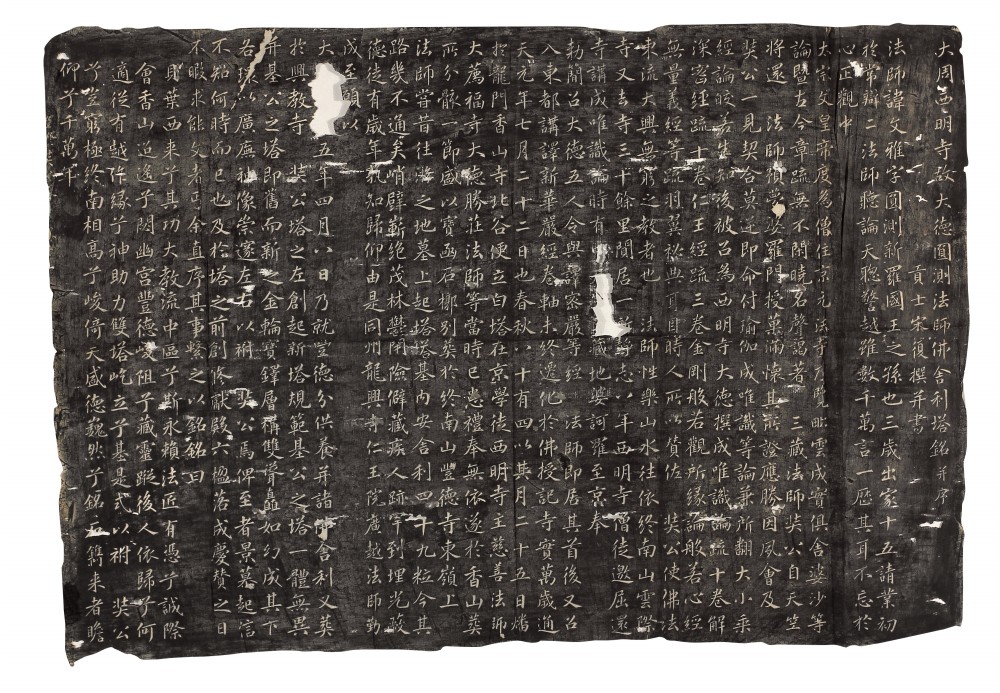 大周西明寺故大德圓測法師佛舍利塔銘并序
貢士宋復撰并書
法師諱文雅字圓測新羅國王之孫也三歲出家十五請業初
於常辯二法師聽論天聰警越雖數千萬言一歷其耳不忘於
心正觀中
太宗文皇帝度為僧住京元法寺覽毗雲成實俱舍婆沙等
論暨古今章疏無不閑曉名聲藹著 三藏法師奘公自天竺
將還 法師預夢婆羅門授菓滿懷其所證應勝因夙會及
奘公一見契合莫逆即命付瑜伽成唯識等論兼所翻大小乘
經論皎若生知後被召為西明寺大德撰成唯識論疏十卷解
深密經疏十卷仁王經疏三卷金剛般若觀所緣論般若心經
無量義經等疏羽翼祕典耳目時人所以贊佐 奘公使佛法
東流大興無窮之教者也 法師性樂山水往依終南山雲際
寺又去寺三十餘里閑居一靜志八年西明寺僧徒邀屈還
寺講成唯識論時有藏地婆訶羅至京奉
勅簡召大德五人令與譯密嚴等經 法師即居其首後又召
入東都講譯新華嚴經卷軸未終遷化於佛授記寺實萬歲通
天元年七月二十二日也春秋八十有四以其月二十五日燔
於龍門香山寺北谷便立白塔在京學徒西明寺主慈善法師
大薦福寺大德勝莊法師等當時已患禮奉無依遂於香山葬
所分骸一節盛以寶函石槨別葬於終南山豐德寺東嶺上
法師嘗昔往遊之地墓上起塔塔基內安舍利四十九粒今其
路幾不通矣峭壁嶄絕茂林鬱閉險僻藏疾人跡罕到埋光蔽
德徒有歲年孰知歸仰由是同州龍興寺仁王院廣越法師勤
成至願以
大五年四月八日乃就豐德分供養并諸佛舍利又葬
於興教寺 奘公塔之左創起新塔規範基公之塔一體無異
并基公之塔即舊而新之金輪寶鐸層構雙聳矗如幻成其下
各環以廣廡神像崇邃左右以祔 奘公焉俾至者景慕起信
不知何時而已也及於塔之前創修獻殿六楹落成慶贊之日
不暇求能文者余直序其事繫之以銘銘曰
貝葉西来兮其功大教流中區兮斯永賴法匠有憑兮誠際
會香山迫遙兮閟幽宮豐德峻阻兮藏靈蹤後人依歸兮何
適從有越作緣兮神助力雙塔屹立兮基是式以祔 奘公
兮豈窮極終南相高兮峻倚天盛德巍然兮銘石鐫来者瞻
仰兮千萬年